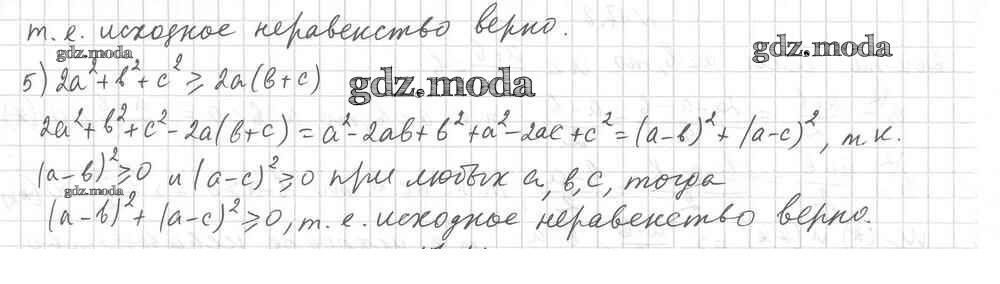 т.е. исходное неравенство верно.
gdz.moda
gdz.moda
5) 2a²+в²+с² ⩾ 2a(в+с)
gdz.moda
2a²+в²+с²-2a(в+с)=a²-2aв+в²+a²-2ac+c²=(a-в)²+(a-c)², т.к.
(a-в)²⩾0 и (a-c)²⩾0 при любых a,в,с, тогда
gdz.moda
(a-в)²+(a-c)²⩾0, т.е. исходное неравенство верно.